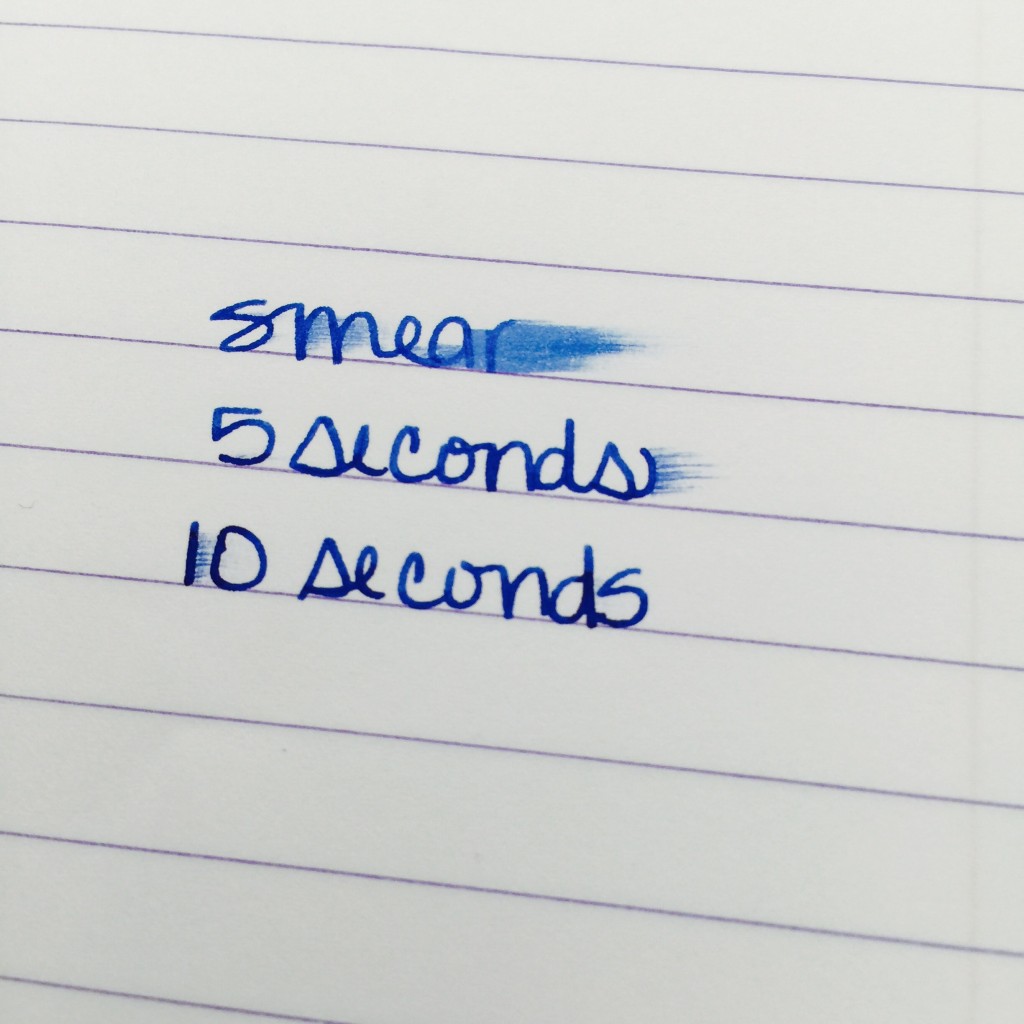 smear
5 seconds
10 seconds